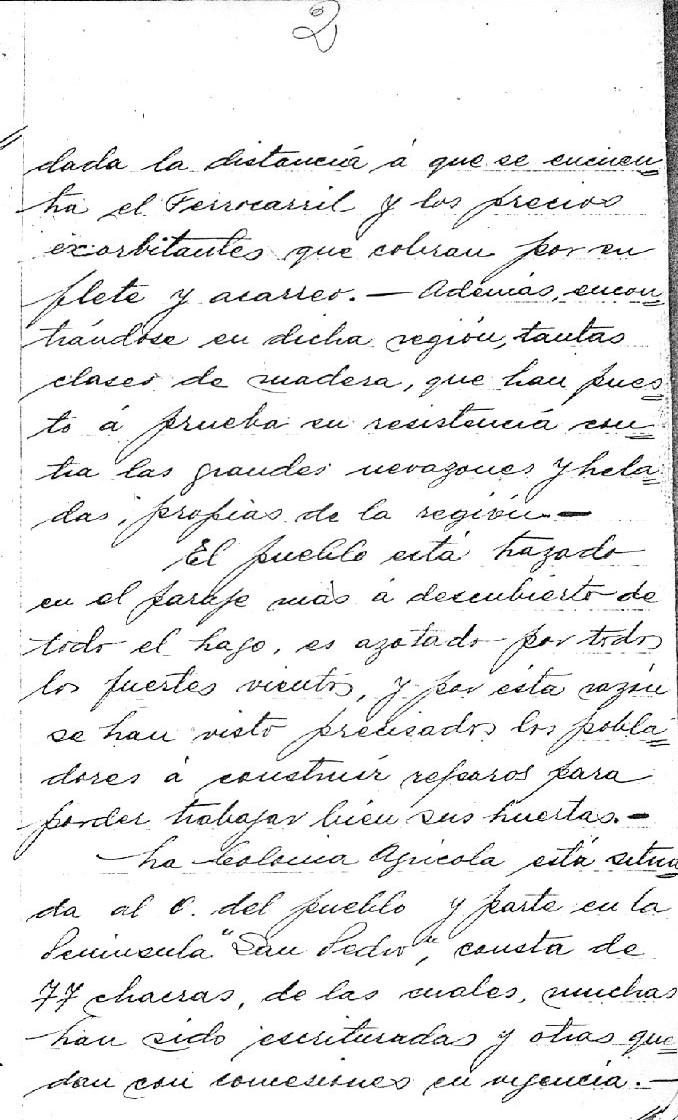 2
dada la distancia á que se encuen=
tra el Ferrocarril y los precios
exorbitantes que cobran por su
flete y acarreo.— Además, encon=
trándose en dicha región, tantas
clases de madera, que han pues=
to á prueba su resistencia con=
tra las grandes nevazones y hela=
das, propias de la región.—
El pueblo está trazado
en el paraje más á descubierto de
todo el lago, es azotado por todos
los fuertes vientos, y por ésta razón
se han visto precisados los pobla=
dores á construír reparos para
porder trabajar bien sus huertas.—
La Colonia Agricola está situa
da al O. del pueblo y parte en la
Peninsula "San Pedro", consta de
77 chacras, de las cuales, muchas
han sido escrituradas y otras que=
dan con concesiones en vigencia.—